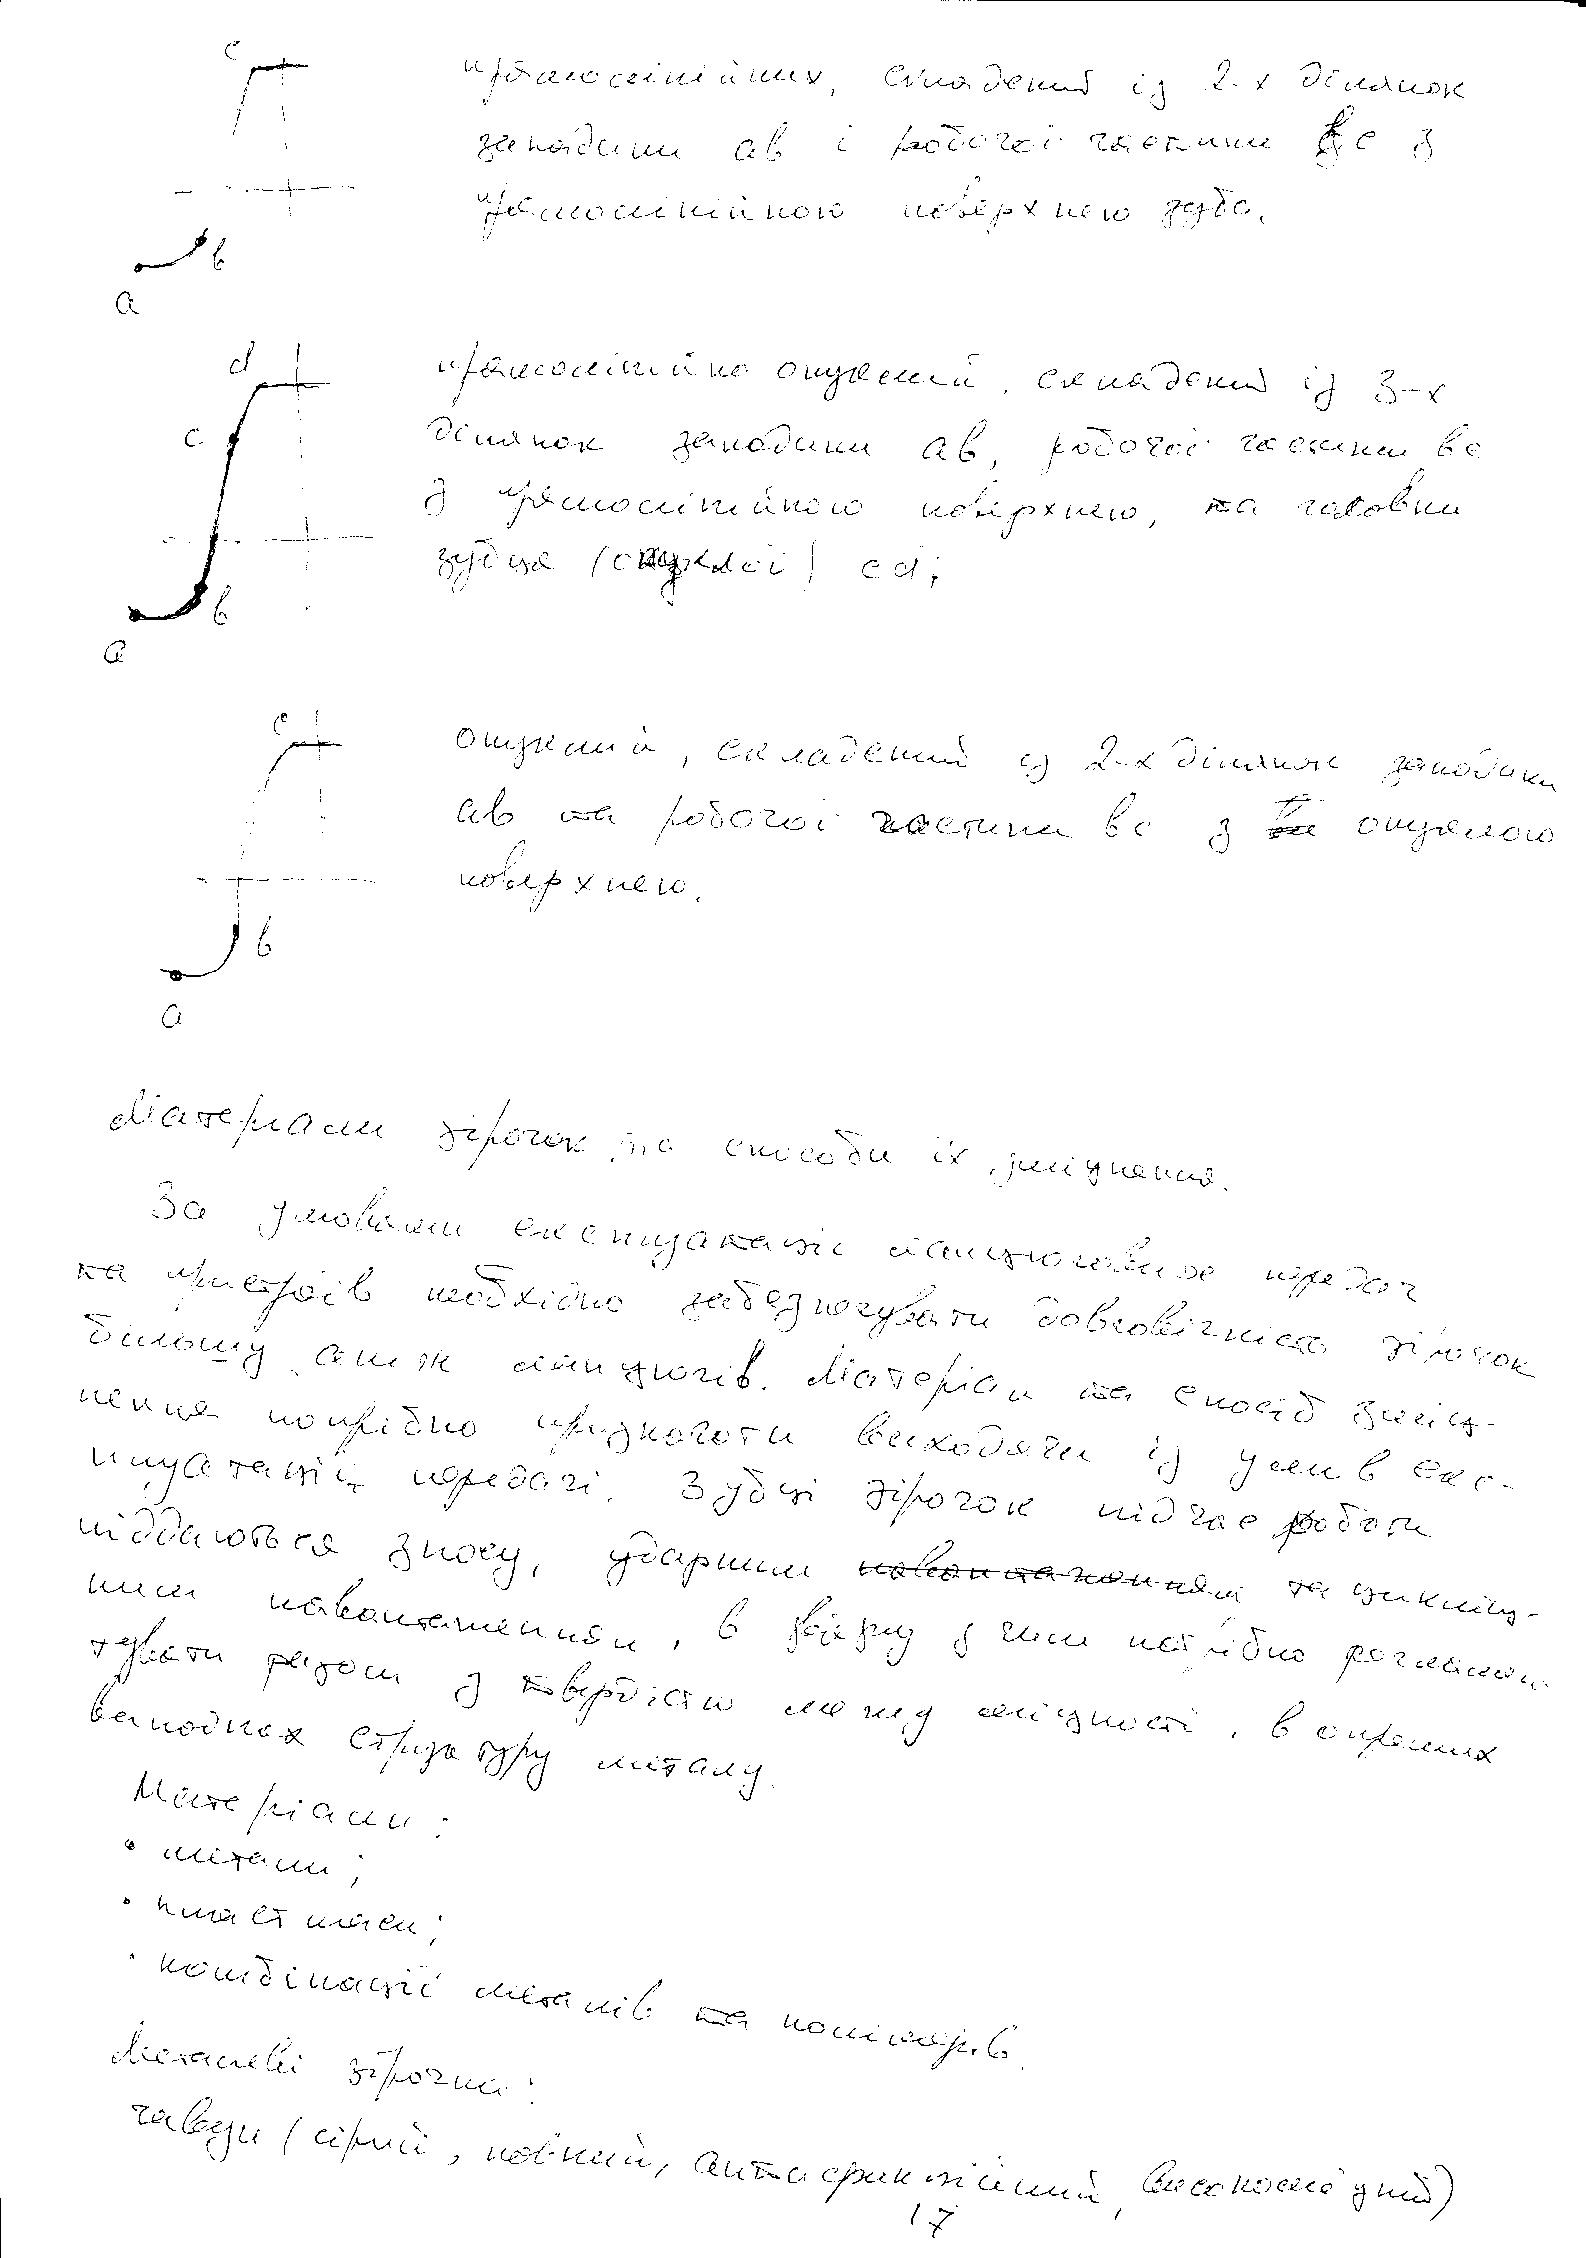 c
прямолінійних, складений із 2-х ділянок
западини ав і робочої частини вс з
прямолінійною поверхнею зуба.
b
a
d
прямолінійно опуклий, складений із 3-х
c
ділянок западини ав, робочої частини вс
з прямолінійною поверхнею, та головки
зубця (опуклої) cd;
b
a
c
опуклий, складений із 2-х ділянок западини
ав та робочої частини вс з опуклою
поверхнею.
b
a
Матеріали зірочок та способи їх зміцнення.
За умовами експлуатації ланцюгових передач
та пристроїв необхідно забезпечувати довговічність зірочок
більшу, аніж ланцюгів. Матеріал та спосіб зміц-
нення потрібно призначати виходячи із умов екс-
плуатації передачі. Зубці зірочок підчас роботи
піддаються зносу, ударним навантаженням та циклід-
ним навантаженням, в зв'язку з чим потрібно регламен-
тувати разом з твердістю межу міцності, в окремих
випадках структуру металу.
Матеріали:
• метали;
• пластмаси;
• комбінації металів та полімерів.
Металеві зірочки:
чавун (сірий, ковкий, антифрикційний, високоміцний)
17